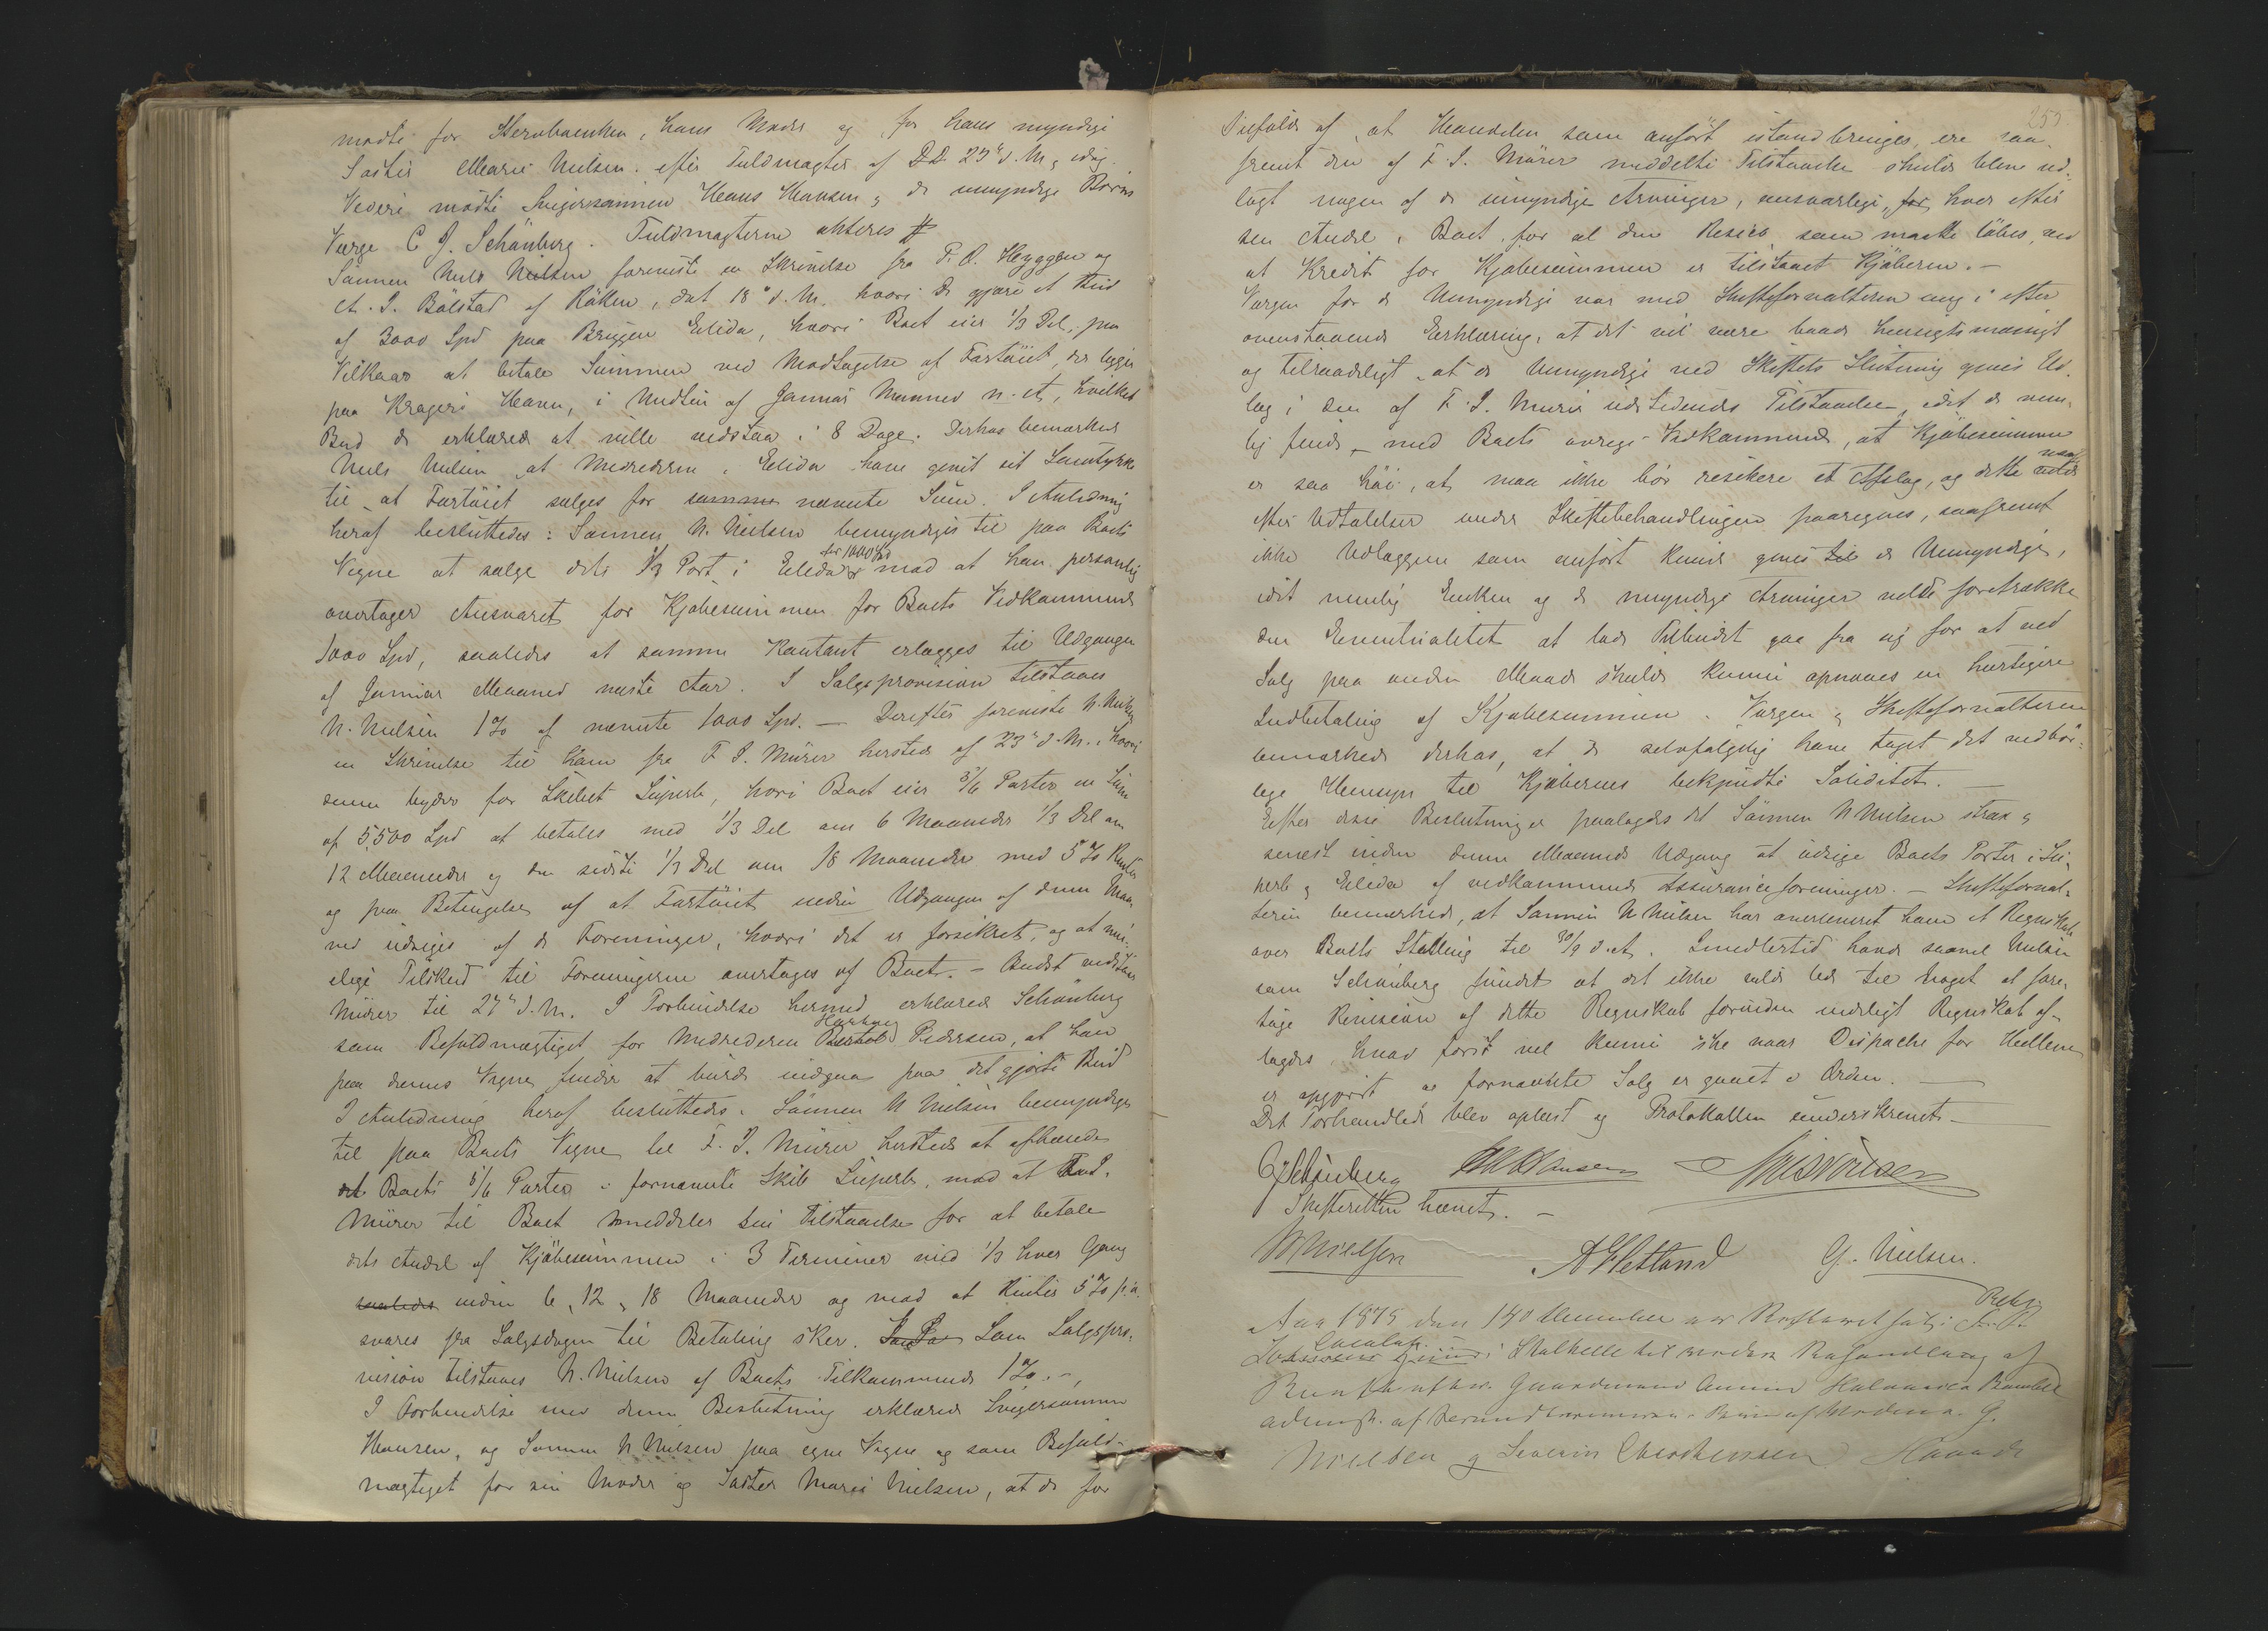 mødte for Stervboenken, hans Moder og for hans myndige
Søster Marie Nielsen efter Fuldmagter af DD 25de d. M. og idag.
Videre mødte Svigersønnen Hans Hansen og de umyndige Børns
Værge C J. Schønberg. Fuldmagterne akteres #
Sønnen Niels Nielsen foreviste en Skrivelse fra P. O. Heyggen og
A. S. Bølstad af Røken, dat 18de d. M. hvori de gjøre et Bud
af 3000 Spd paa Briggen Elida, hvori Boet eier 1/3 Del, paa
Vilkaar at betale Summen ved Modtagelse af Fartøiet, der ligger
paa Kragerø Havn, i Midten af Januar Maaned n. A, hvilket
Bud de erklærede at ville vedstaa i 8 Dage. Derhos bemærked
Niels Nielsen at Medrederne i Elida have givet sit Samtykke
til at Fartøiet sælges for samme nævnte Sum. I Anledning
heraf besluttedes: Sønnen N. Nielsen bemyndiges til paa Boets
Vegne at sælge dets 1/3 Part i Elida for 1000 Spd mod at han personlig
overtager Ansvaret for Kjøbesummen for Boets Vedkommende
1000 Spd, saaledes at samme kontant erlægges til Udgangen
af Januar Maaned næste Aar. I Salgsprovision tilstaaes
N. Nielsen 1% af nævnte 1000 Spd. — Derefter foreviste N. Nielsen
en Skrivelse til ham fra F. S. Mürer hersteds af 23de d. M. hvori
denne byder for Skibet Superb, hvori Boet eier 5/6 Parter en Sum
af 5,500 Spd at betales med 1/3 Del om 6 Maaneder 1/3 Del om
12 Maaneder og den sidste 1/3 Del om 18 Maaneder med 5% Renter
og paa Betingelse af at Fartøiet inden Udgangen af denne Maa-
ned udsiges af de Foreninger, hvori det er forsikret, og at mu-
elige Tilskud til Foreningerne overtages af Boet. — Budet vedstaar
Mürer til 27de d. M. I Forbindelse hermed erklærede Schønberg
som Befuldmægtiget for Medrederen Pedersen, at han
paa dennes Vegne finder at burde indgaa paa det gjorte Bud
I Anledning heraf besluttedes: Sønnen N Nielsen bemyndiges
til paa Boets Vegne til F. S. Mürer hersteds at afhænde
det Boets 5/6 Parter i fornævnte Skib Superb, mod at
Mürer til Boet meddeler sin Tilstaaelse for at betale
dets Andel af Kjøbesummen i 3 Terminer med 1/3 hver Gang
saaledes inden 6, 12, 18 Maaneder og mod at Renter 5% p. a.
svares fra Salgsdagen til Betaling sker. Som Salgspro-
vision tilstaaes N. Nielsen af Boets Tilkommende 1%. —
I Forbindelse med denne Beslutning erklærede Svigersønnen
Hansen, og Sønnen N Nielsen paa egne Vegne og som Befuld-
mægtiget for sin Moder og Søster Marie Nielsen, at de for
253
Tilfælde af at Handelen som anført istandbringes, ere saa-
fremt den af F. S. Mürer meddelte Tilstaaelse skulde blive ud-
lagt nogen af de umyndige Arvinger, ansvarlige, for hver efter
sen Andel i Boet, for al den Resico som maatte løbes ved
at Kredit for Kjøbesummen er tilstaaet Kjøberen. —
Værgen for de Umyndige var med Skifteforvalteren enig i efter
ovenstaaende Erklæring, at det vil være baade hensigtsmæssigt
og tilraadeligt at de Umyndige ved Skiftets Slutning gives Ud-
læg i den af F. S. Mürer udstedende Tilstaaelse, idet de nem-
lig finde, med Boets øvrige Vedkommende, at Kjøbesummen
er saa høi, at man ikke bør resikere et Afslag, og dette maa
efter Udtalelser under Skiftebehandlingen paaregnes, saafremt
ikke Udlæggene som anført kunde gives til de Umyndige,
idet nemlig Enken og de myndige Arvinger vilde foretrække
den Eventualitet at lade Tilbudet gaa fra sig for at ved
Salg paa anden Maade skulde kunne opnaaes en hurtigere
Indbetaling af Kjøbesummen. Værgen og Skifteforvalteren
bemærkede derhos, at de selvfølgelig have taget det ved-
lige Hensyn til Kjøbernes bekjendte Soliditet. —
Efter disse Beslutninger paalagdes det Sønnen N Nielsen strax og
senest inden denne Maaneds Udgang at udsige Boets Parter i Su-
perb og Elida af vedkommende Assuranceforeninger. — Skifteforval-
teren bemærkede, at Sønnen N Nielsen har overleveret ham et Regnskab
over Boets Stilling til 30/9 d. A. Imidlertid havde saavel Nielsen
som Schønberg fundet at det ikke vilde lede til Noget at fore-
tage Revision af dette Regnskab forinden endeligt Regnskab af-
lagdes, hvad først vel kunne ske naar Dispache for
er opgjort og fornævnte Salg er gaaet i Orden. —
Det Forhandlede blev oplæst og Protokollen underskrevet —
C J Schönberg Hansen
Skifteretten hævet. —
N Nielsen A Hetland G. Nielsen.
Aar 1875 den
Locale i
Gaardmand
af
Nielsen og Severin Christensen